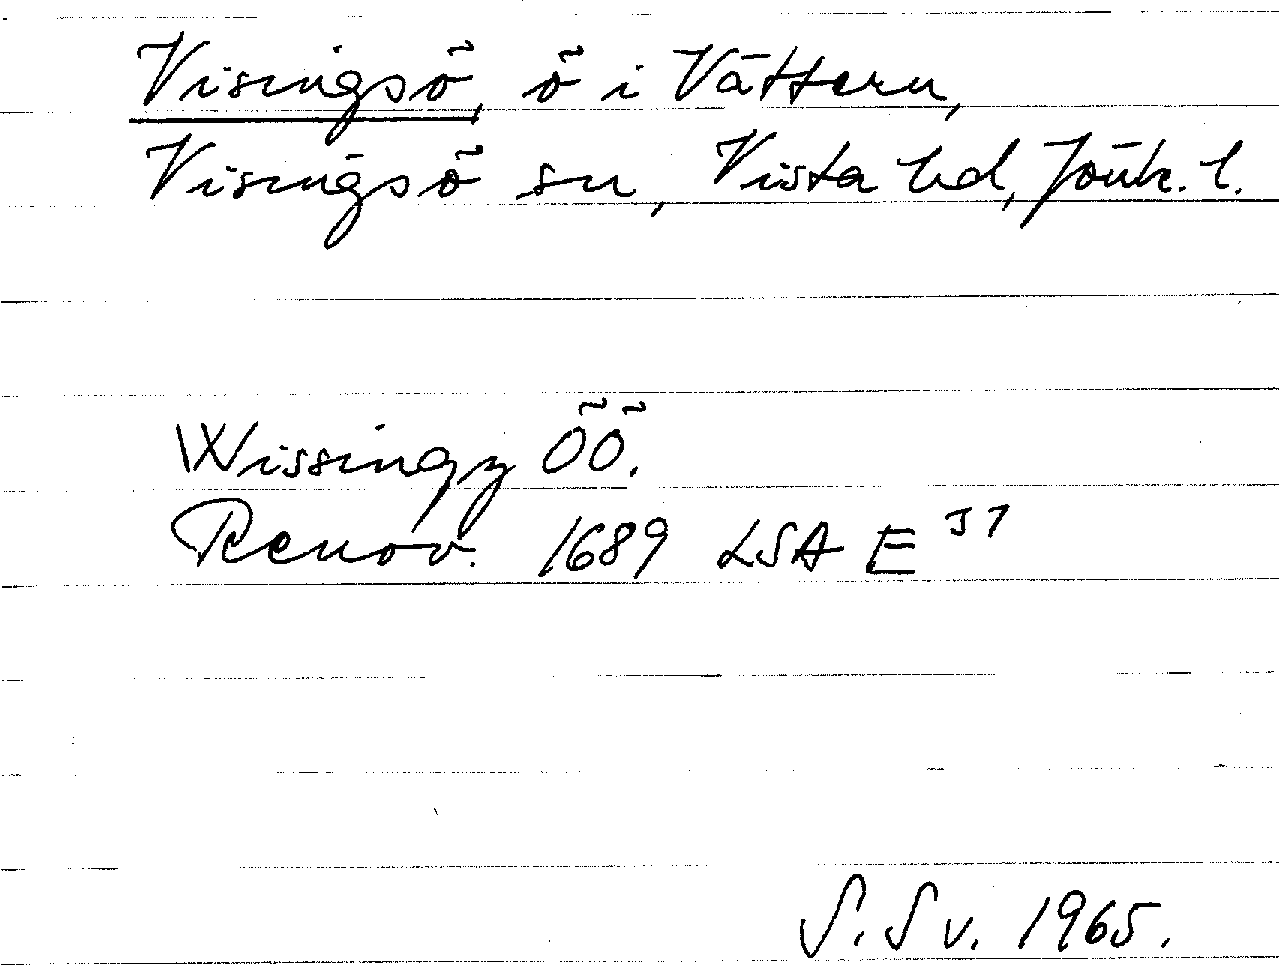 Visingsö, ö i Vättern,
Visingsö sn, Vista hd, Jönk. l.
Wissingz ÖÖ.
Renov. 1689 LSA E J1
S. Sv. 1965.